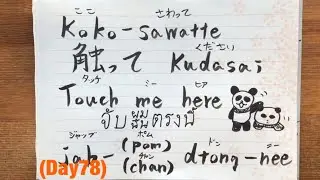 ここ さわって
Koko-sawatte
ください
触って Kudasai
タッチ ミー ヒア
Touch me here
ผม
จับ ฉัน ตรงนี้
ジャップ ポム チャン ドン ニー
jab- (pom) (chan) dtrong-nee
(Day78)